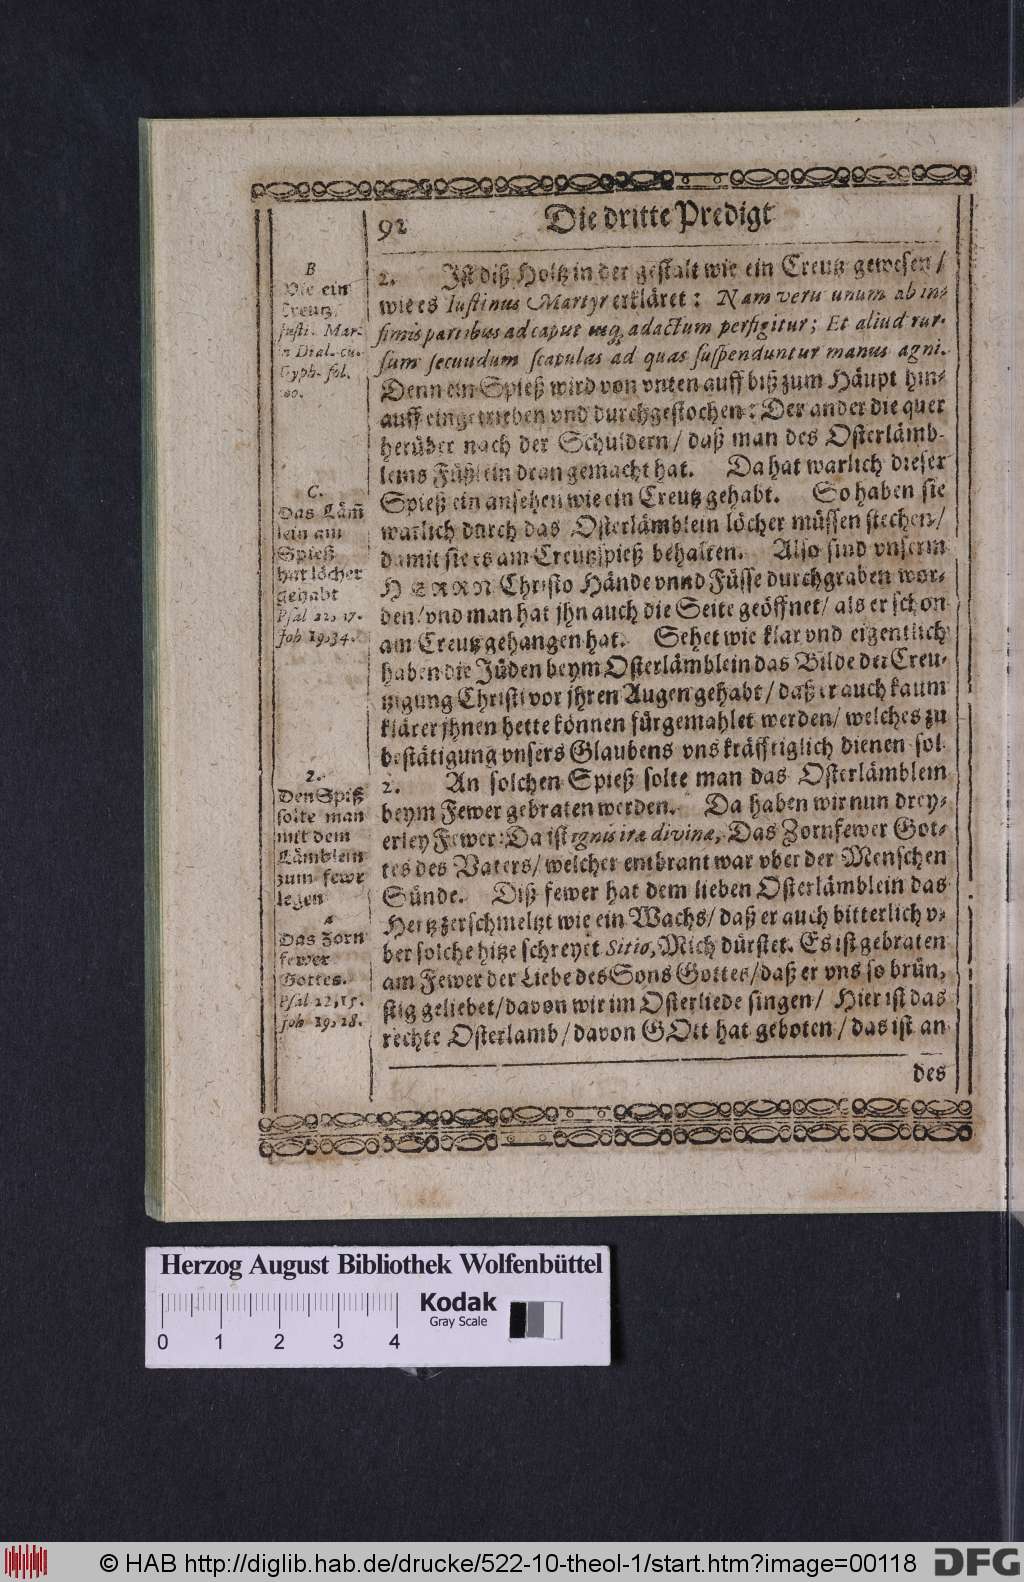 92
Die dritte Predigt
2. Ist diß Holtz in der gestalt wie ein Creutz gewesen /
wie es Iustinus Martyr erkläret: Nam veru unum ab in-
fimis partibus ad caput usq; adactum perfigitur; Et aliud rur-
sum secuudum scapulas ad quas suspenduntur manus agni.
Denn ein Spieß wird von vnten auff biß zum Häupt hin-
auff eingetrieben vnd durchgestochen: Der ander die quer
herüber nach der Schuldern / daß man des Osterlämb-
leins Füßlein dran gemacht hat. Da hat warlich dieser
Spieß ein ansehen wie ein Creutz gehabt. So haben sie
warlich durch das Osterlämblein löcher müssen stechen /
damit sie es am Creutzspieß behalten. Also sind vnserm
HERRN Christo Hände vnnd Füsse durchgraben wor-
den / vnd man hat jhn auch die Seite geöffnet / als er schon
am Creutz gehangen hat. Sehet wie klar vnd eigentlich
haben die Jüden beym Osterlämblein das Bilde der Creu-
tzigung Christi vor jhren Augen gehabt / daß er auch kaum
klärer jhnen hette können fürgemahlet werden / welches zu
bestätigung vnsers Glaubens vns kräfftiglich dienen sol.
2. An solchen Spieß solte man das Osterlämblein
beym Fewer gebraten werden. Da haben wir nun drey-
erley Fewer: Da ist ignis iræ divinæ, Das Zornfewer Got-
tes des Vaters / welcher entbrant war vber der Menschen
Sünde. Diß fewer hat dem lieben Osterlämblein das
Hertz zerschmeltzt wie ein Wachs / daß er auch bitterlich v-
ber solche hitze schreyet Sitio, Mich dürstet. Es ist gebraten
am Fewer der Liebe des Sons Gottes / daß er vns so brün-
stig geliebet / davon wir im Osterliede singen / Hier ist das
rechte Osterlamb / davon GOtt hat geboten / das ist an
des
B
Wie ein
Creutz.
Justi. Mar.
in Dial. cu.
Tryph. fol.
C.
Das Läm̃
lein am
Spieß
hat löcher
gehabt
Psal 22, 17.
Joh 19. 34.
2.
Den Spiß
solte man
mit dem
Lämblein
zum fewr
legen
a
Das Zorn
fewer
Gottes.
Psal 22, 15.
Joh 19, 28.
Herzog August Bibliothek Wolfenbüttel
0 1 2 3 4
Kodak
Gray Scale
© HAB http://diglib.hab.de/drucke/522-10-theol-1/start.htm?image=00118
DFG